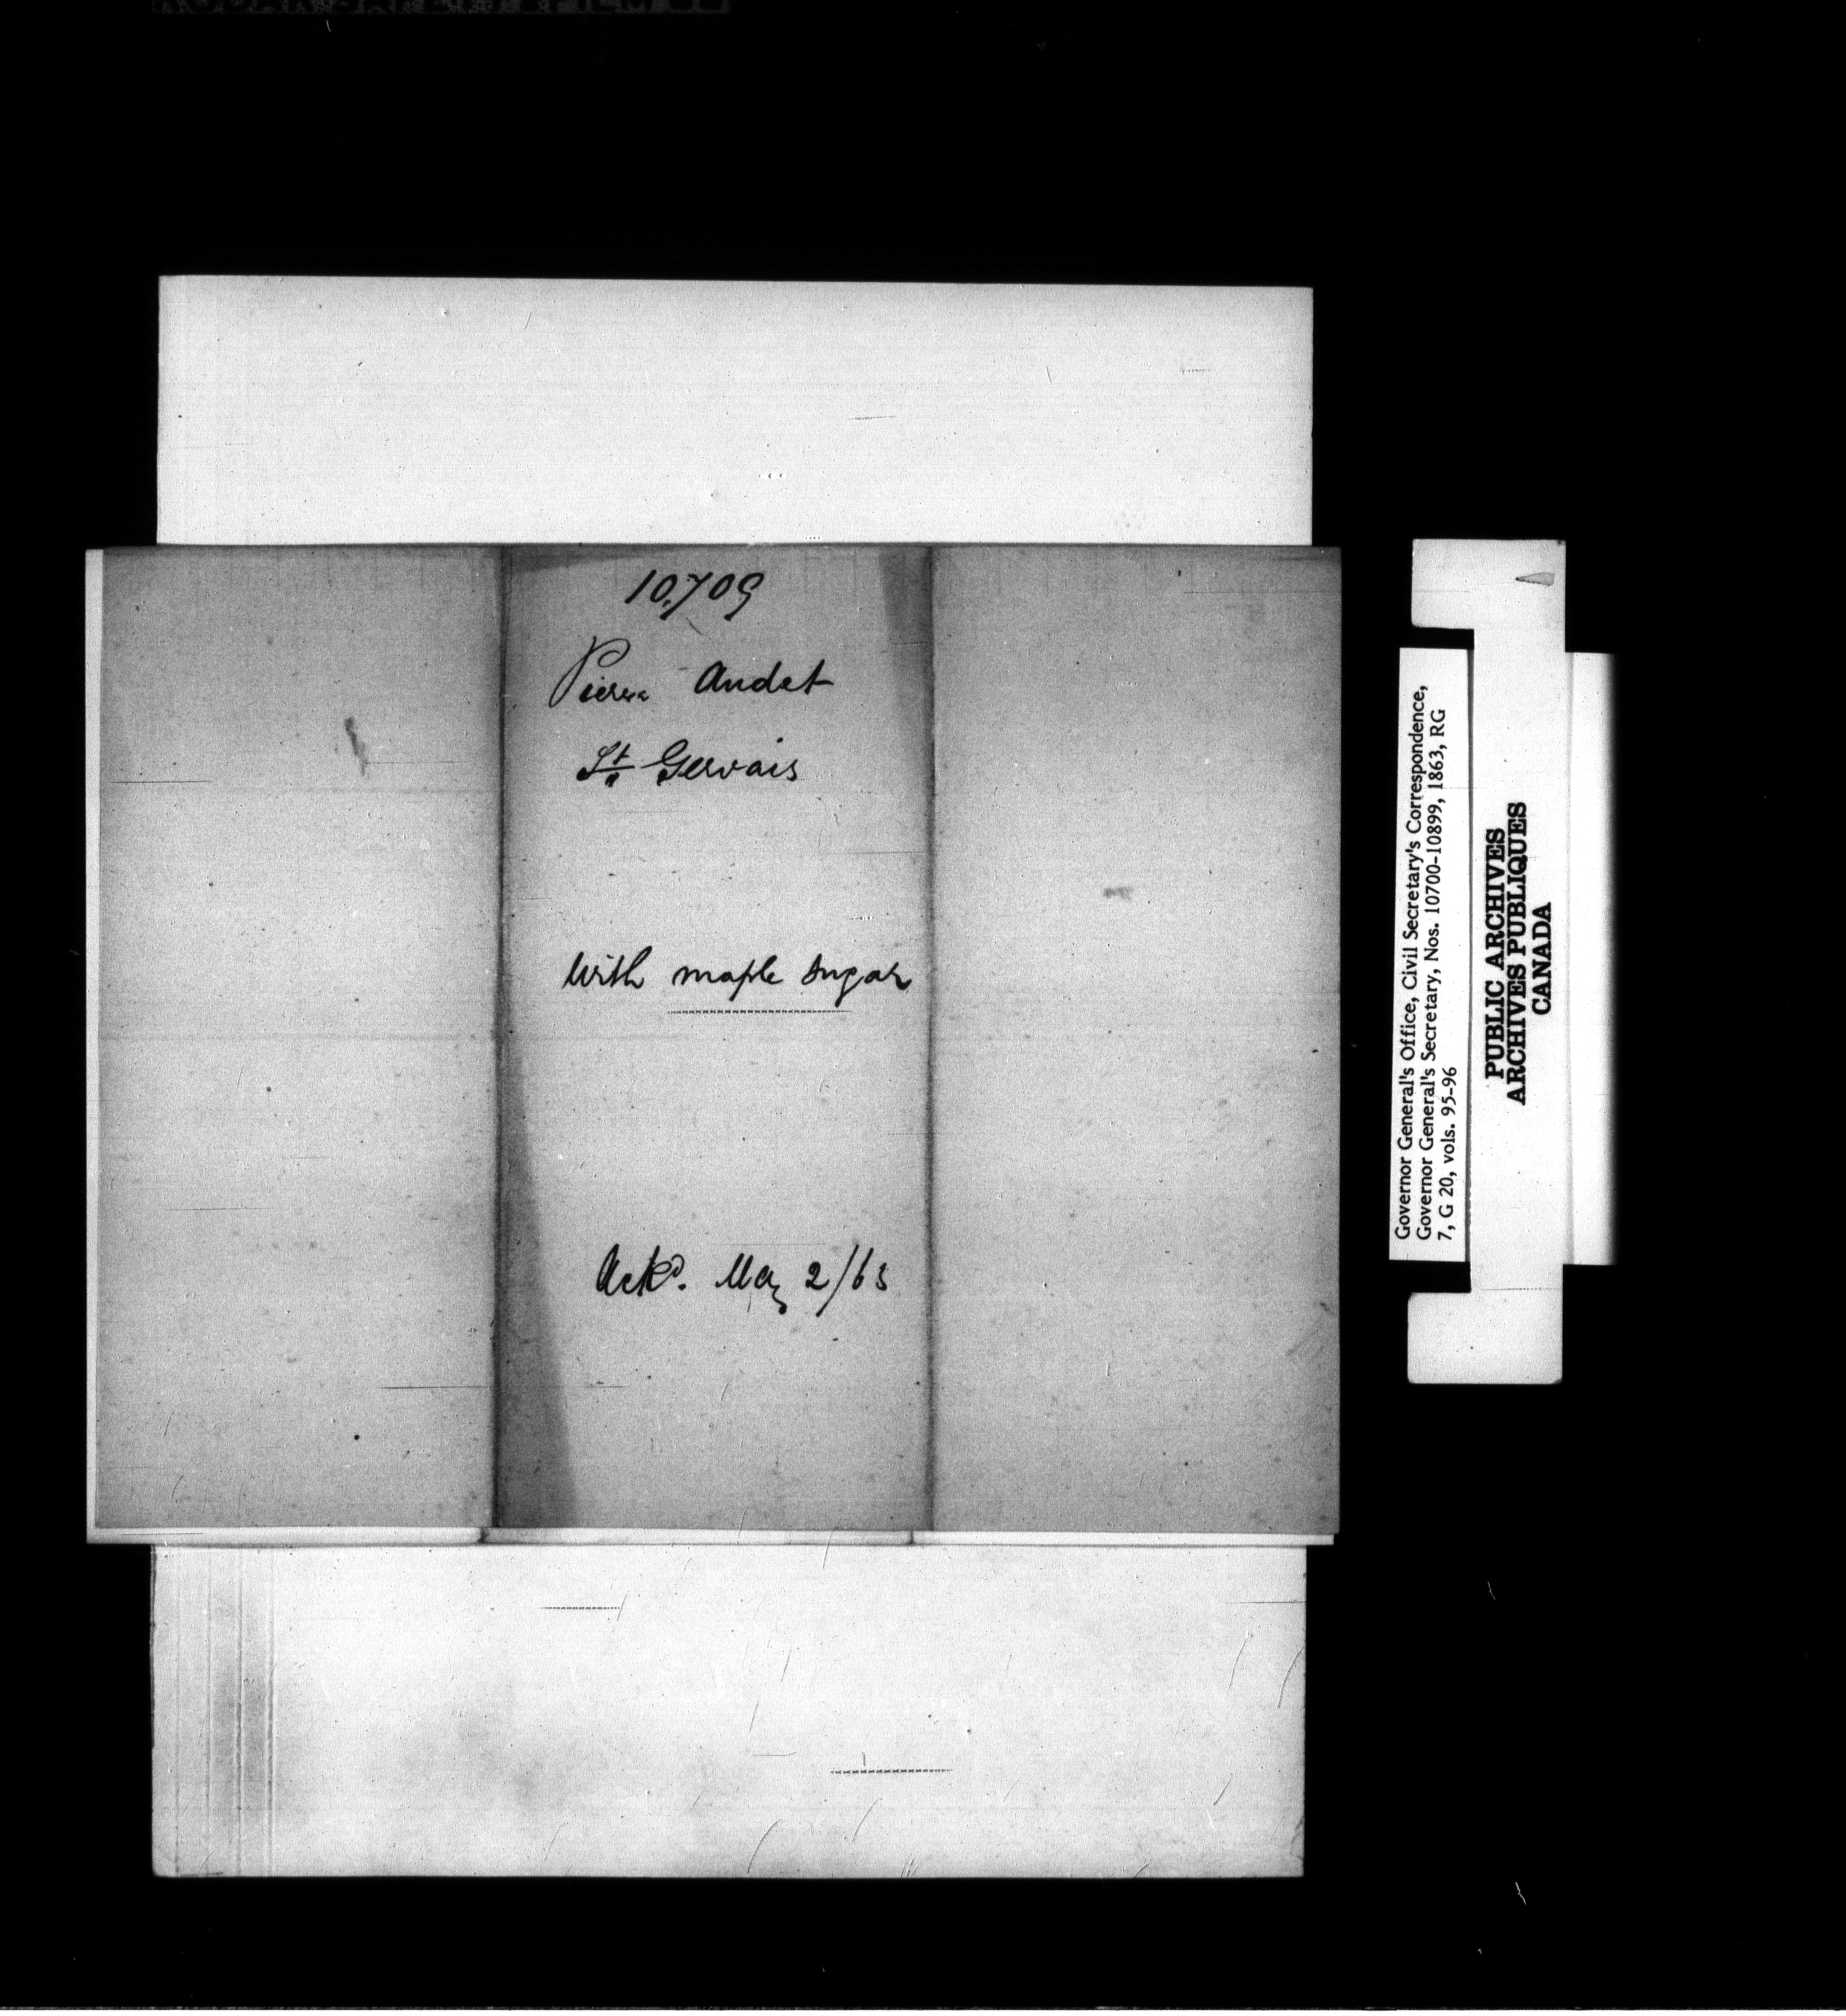 10,709
Pierre Audet
St. Gervais
With maple sugar
Ackd. May 2/63
Governor General's Office, Civil Secretary's Correspondence,
Governor General's Secretary, Nos. 10700-10899, 1863, RG
7, G 20, vols. 95-96
PUBLIC ARCHIVES
ARCHIVES PUBLIQUES
CANADA